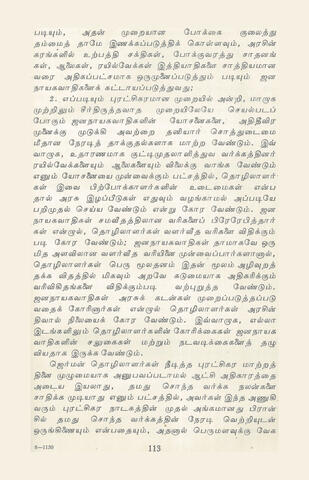 படியும், அதன் முறையான போக்கை குலைத்து
தம்மைத் தாமே இணக்கப்படுத்திக் கொள்ளவும், அரசின்
கரங்களில் உற்பத்தி சக்திகள், போக்குவரத்து சாதனங்
கள், ஆலைகள், ரயில்வேக்கள் இத்தியாதிகளை சாத்தியமான
வரை அதிகப்பட்சமாக ஒருமுனைப்படுத்தும் படியும் ஜன
நாயகவாதிகளைக் கட்டாயப்படுத்துவது;
2. எப்படியும் புரட்சிகரமான முறையில் அன்றி, மாமூக
முற்றிலும் சீர்திருத்தவாத முறையிலேயே செயல்படப்
போகும் ஜனநாயகவாதிகளின் யோசனைகளை, அதிதீவிர
முனைக்கு முடுக்கி அவற்றை தனியார் சொத்துடைமை
மீதான நேரடித் தாக்குதல்களாக மாற்ற வேண்டும். இவ்
வாழுக, உதாரணமாக குட்டிமுதலாளித்துவ வர்க்கத்தினர்
ரயில்வேக்களையும் ஆலைகளையும் விலைக்கு வாங்க வேண்டும்
எனும் யோசனையை முன்வைக்கும் பட்சத்தில், தொழிலாளர்
கள் இவை பிற்போக்காளர்களின் உடைமைகள் என்ப
தால் அரசு இழப்பீடுகள் எதுவும் வழங்காமல் அப்படியே
பறிமுதல் செய்ய வேண்டும் என்று கோர வேண்டும். ஜன
நாயகவாதிகள் சமவீதத்திலான வரிகளைப் பிரேரேபித்தார்
கள் என்றால், தொழிலாளர்கள் வளர்வீத வரிகளை விதிக்கும்
படி கோர வேண்டும்; ஜனநாயகவாதிகள் தாமாகவே ஒரு
மித அளவிலான வளர்வீத வரியினை முன்வைப்பார்களானால்,
தொழிலாளர்கள் பெரு மூலதனம் இதன் மூலம் அழிவுறத்
தக்க விதத்தில் மிகவும் அறவே கடுமையாக அதிகரிக்கும்
வரிவிதிதங்களை விதிக்கும்படி வற்புறுத்த வேண்டும்.
ஜனநாயகவாதிகள் அரசுக் கடன்கள் முறைப்படுத்தப்படு
வதைக் கோரினார்கள் என்றால் தொழிலாளர்கள் அரசின்
திவால் நிலையைக் கோர வேண்டும். இவ்வாழுக, எல்லா
இடங்களிலும் தொழிலாளர்களின் கோரிக்கைகள் ஜனநாயக
வாதிகளின் சலுகைகள் மற்றும் நடவடிக்கைகளைத் தழு
வியதாக இருக்க வேண்டும்.
ஜெர்மன் தொழிலாளர்கள் நீடித்த புரட்சிகர மாற்றத்
தினை முழுமையாக அனுபவப்படாமல் ஆட்சி அதிகாரத்தை
அடைய இயலாது, தமது சொந்த வர்க்க நலன்களை
சாதிக்க முடியாது எனும் பட்சத்தில், அவர்கள் இந்த அணுகி
வரும் புரட்சிகர நாடகத்தின் முதல் அங்கமானது பிரான்
சில் தமது சொந்த வர்க்கத்தின் நேரடி வெற்றியுடன்
ஒருங்கிணையும் என்பதையும், அதனால் பெருமளவுக்கு வேக
8—1130
113